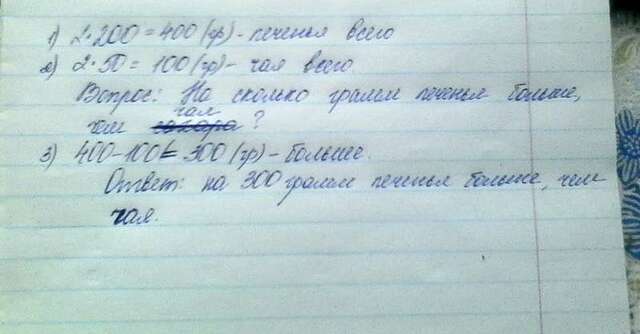 1) 2·200=400 (гр) - печенья всего
2) 2·50=100 (гр) - чая всего.
Вопрос: На сколько грамм печенья больше,
чая
чем сахара ?
3) 400-100=300 (гр) - больше.
Ответ: на 300 грамм печенья больше, чем
чая.